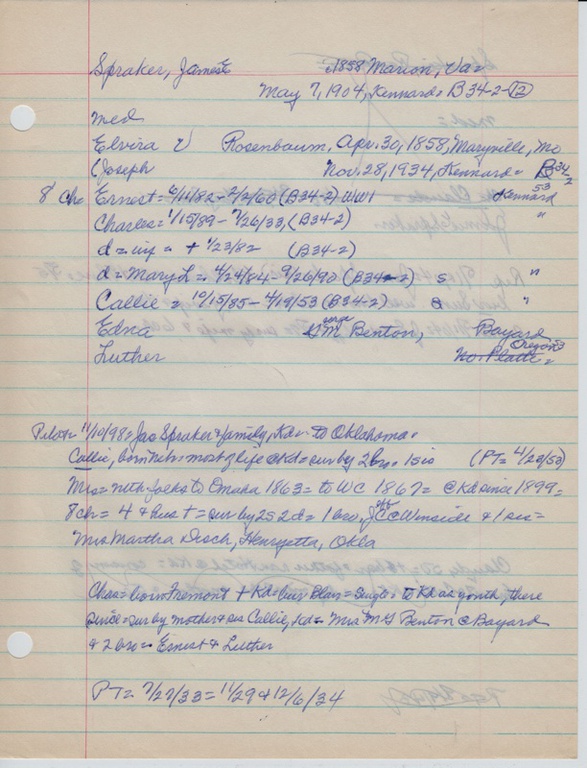 Spraker, James E c1858 Marion, Va=
May 7, 1904, Kennard= B34-2-12
med
Elvira V Rosenbaum, Apr. 30, 1858, Maryville, Mo
(Joseph Nov. 28, 1934, Kennard= B34-2
8 Ch= Ernest= 6/11/82 - 2/2/60 (B34-2) WW1 Kennard 53
Charles= 1/15/89 - 7/26/33, (B34-2) "
d= inf = + 1/23/82 (B34-2)
d= Mary L.= 4/24/84 9/26/90 (B34-2) s "
Callie = 10/15/85 - 4/19/53 (B34-2) "
Edna George M Benton, Bayard
Luther No. Platte= Oregon 53
Pilot= 11/10/98= Jas Spraker & family, Kd= to Oklahoma=
Callie, born Neb= most of life @ Kd= sur by 2 bro. 1 sis (PT= 4/23/53)
Mrs= with folks to Omaha 1863= to WC 1867= @ Kd since 1899=
8 ch= 4 & hus += sur by 2s 2d= 1 bro, JC @ Winside & 1 sis=
Mrs Martha Disch, Henryetta, Okla
Chas= born Fremont + Kd= bur Blair= single= to Kd as youth, there
since= sur by mother & sis Callie, Kd= Mrs M G Benton @ Bayard
& 2 bro= Ernest & Luther
PT= 7/27/33= 11/29 & 12/6/34